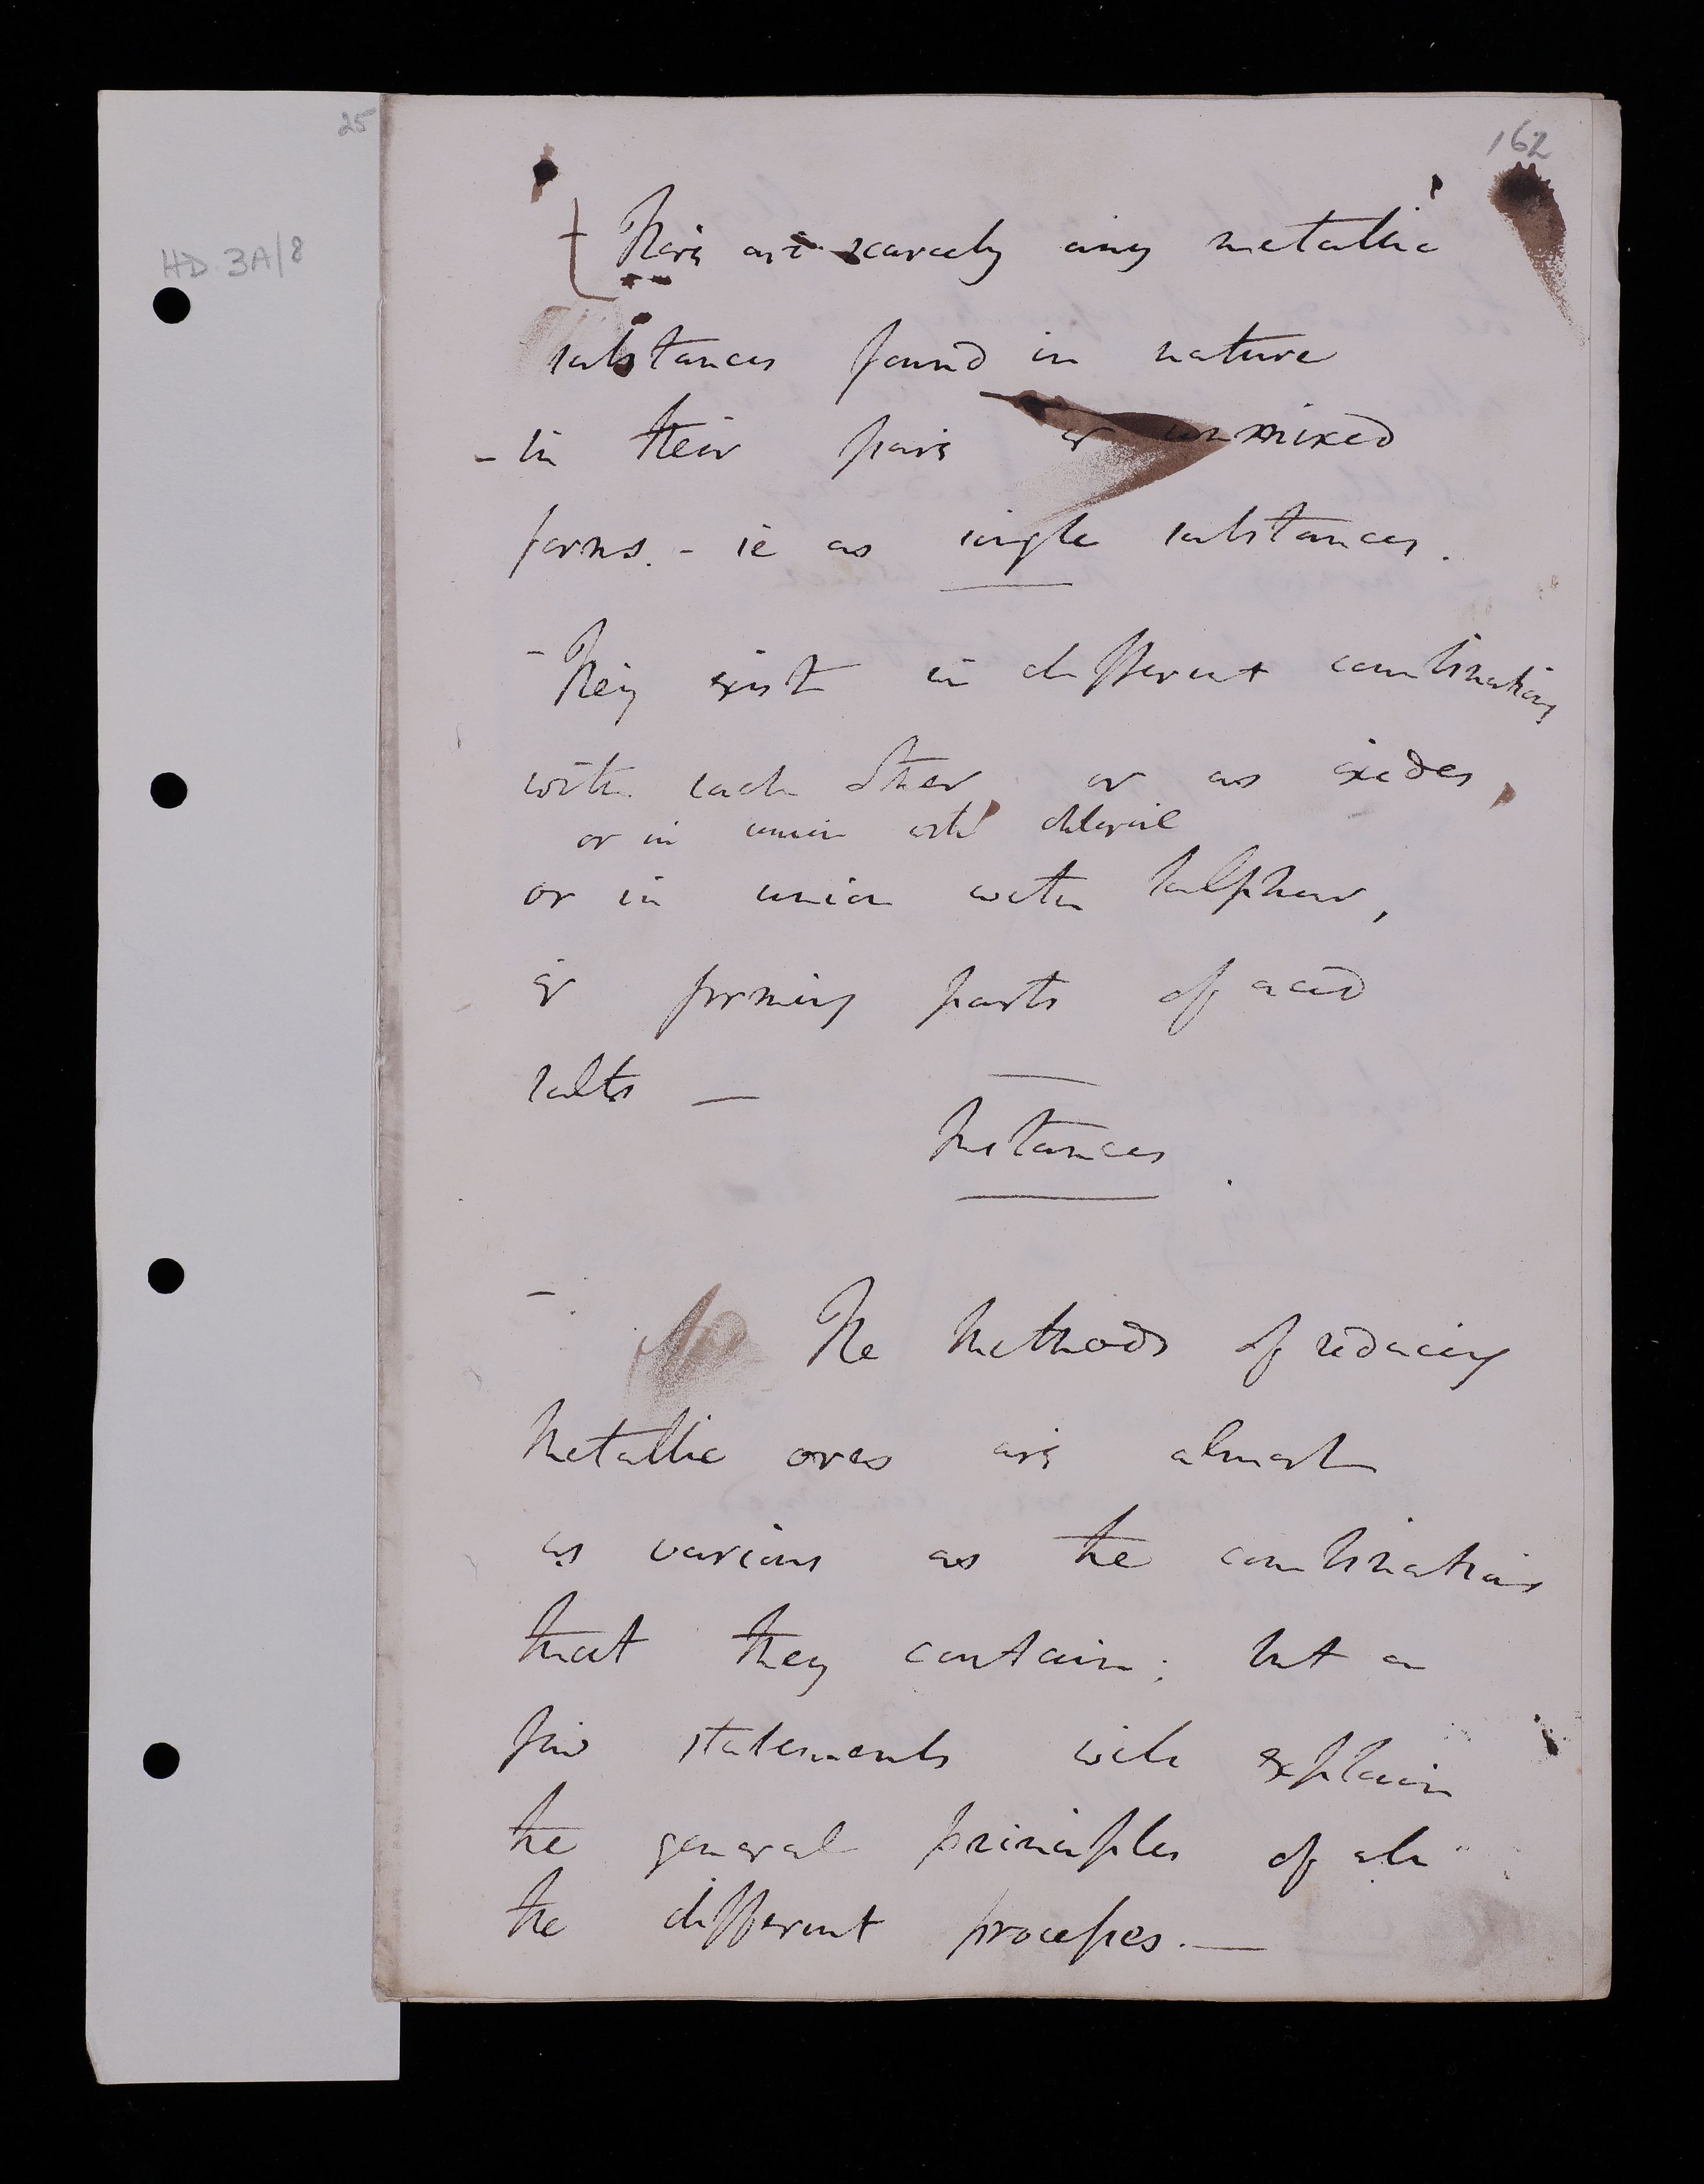 25
162
HD 3A/8
There are scarcely any metallic
substances found in nature
- in their pure or unmixed
forms. - ie as single substances.
- They exist in different combinations
with each other or as oxides,
or in union with
or in union with sulphur,
or forming parts of acid
salts —
Instances.
- The methods of reducing
Metallic ores are almost
as various as the combinations
that they contain; but a
few statements will explain
the general principles of all
the different processes. —